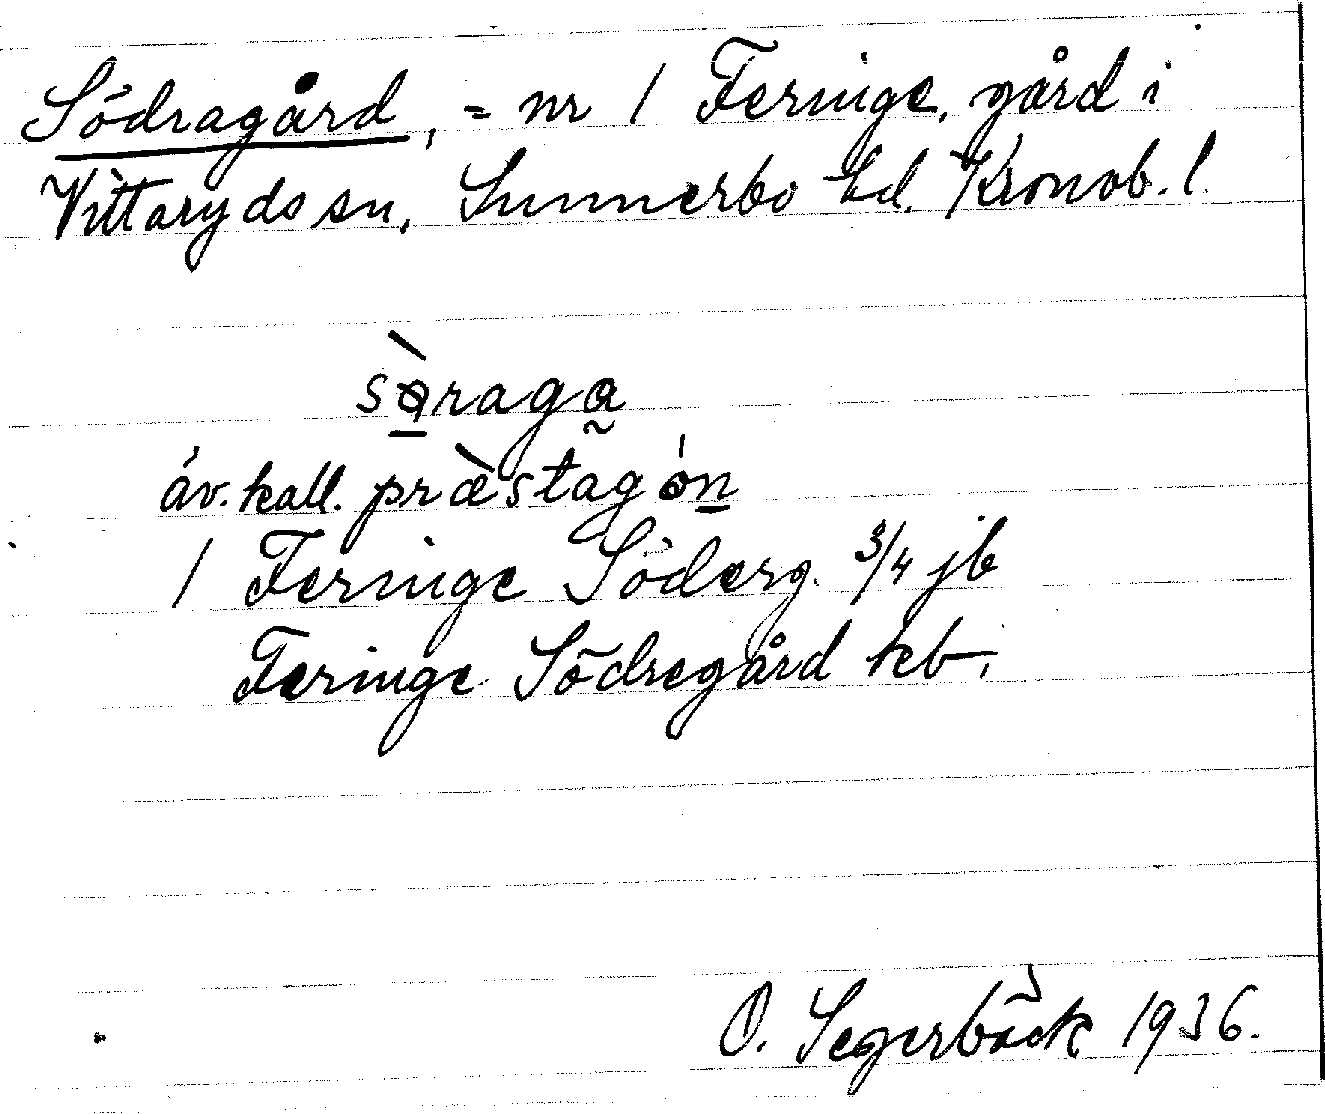 Södragård, = nr 1 Feringe, gård i
Vittaryds sn, Sunnerbo hd. Kronob. l.
sǫ̀raga
äv. kall. præ̀stagón
1 Feringe Söderg. 3/4 jb
Feringe Södregård kb.
O. Segerbäck 1936.